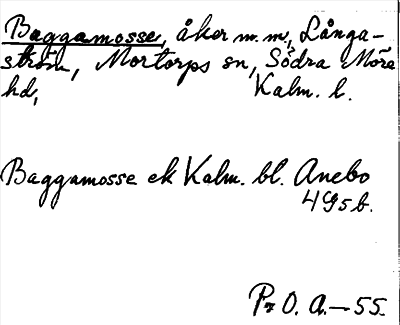 Baggamosse, åker m.m., Långa-
ström, Mortorps sn, Södra Möre
hd, Kalm. l.
Baggamosse ek Kalm. bl. Anebo
4 9 5 b.
Pr O. A. — 55.